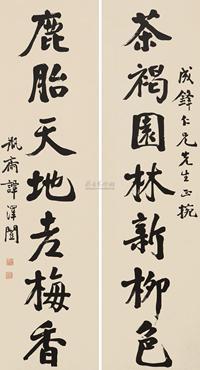 成鋒仁兄先生正捥
茶褐園林新柳色
鹿胎天地老梅香
瓶齋譚澤闓